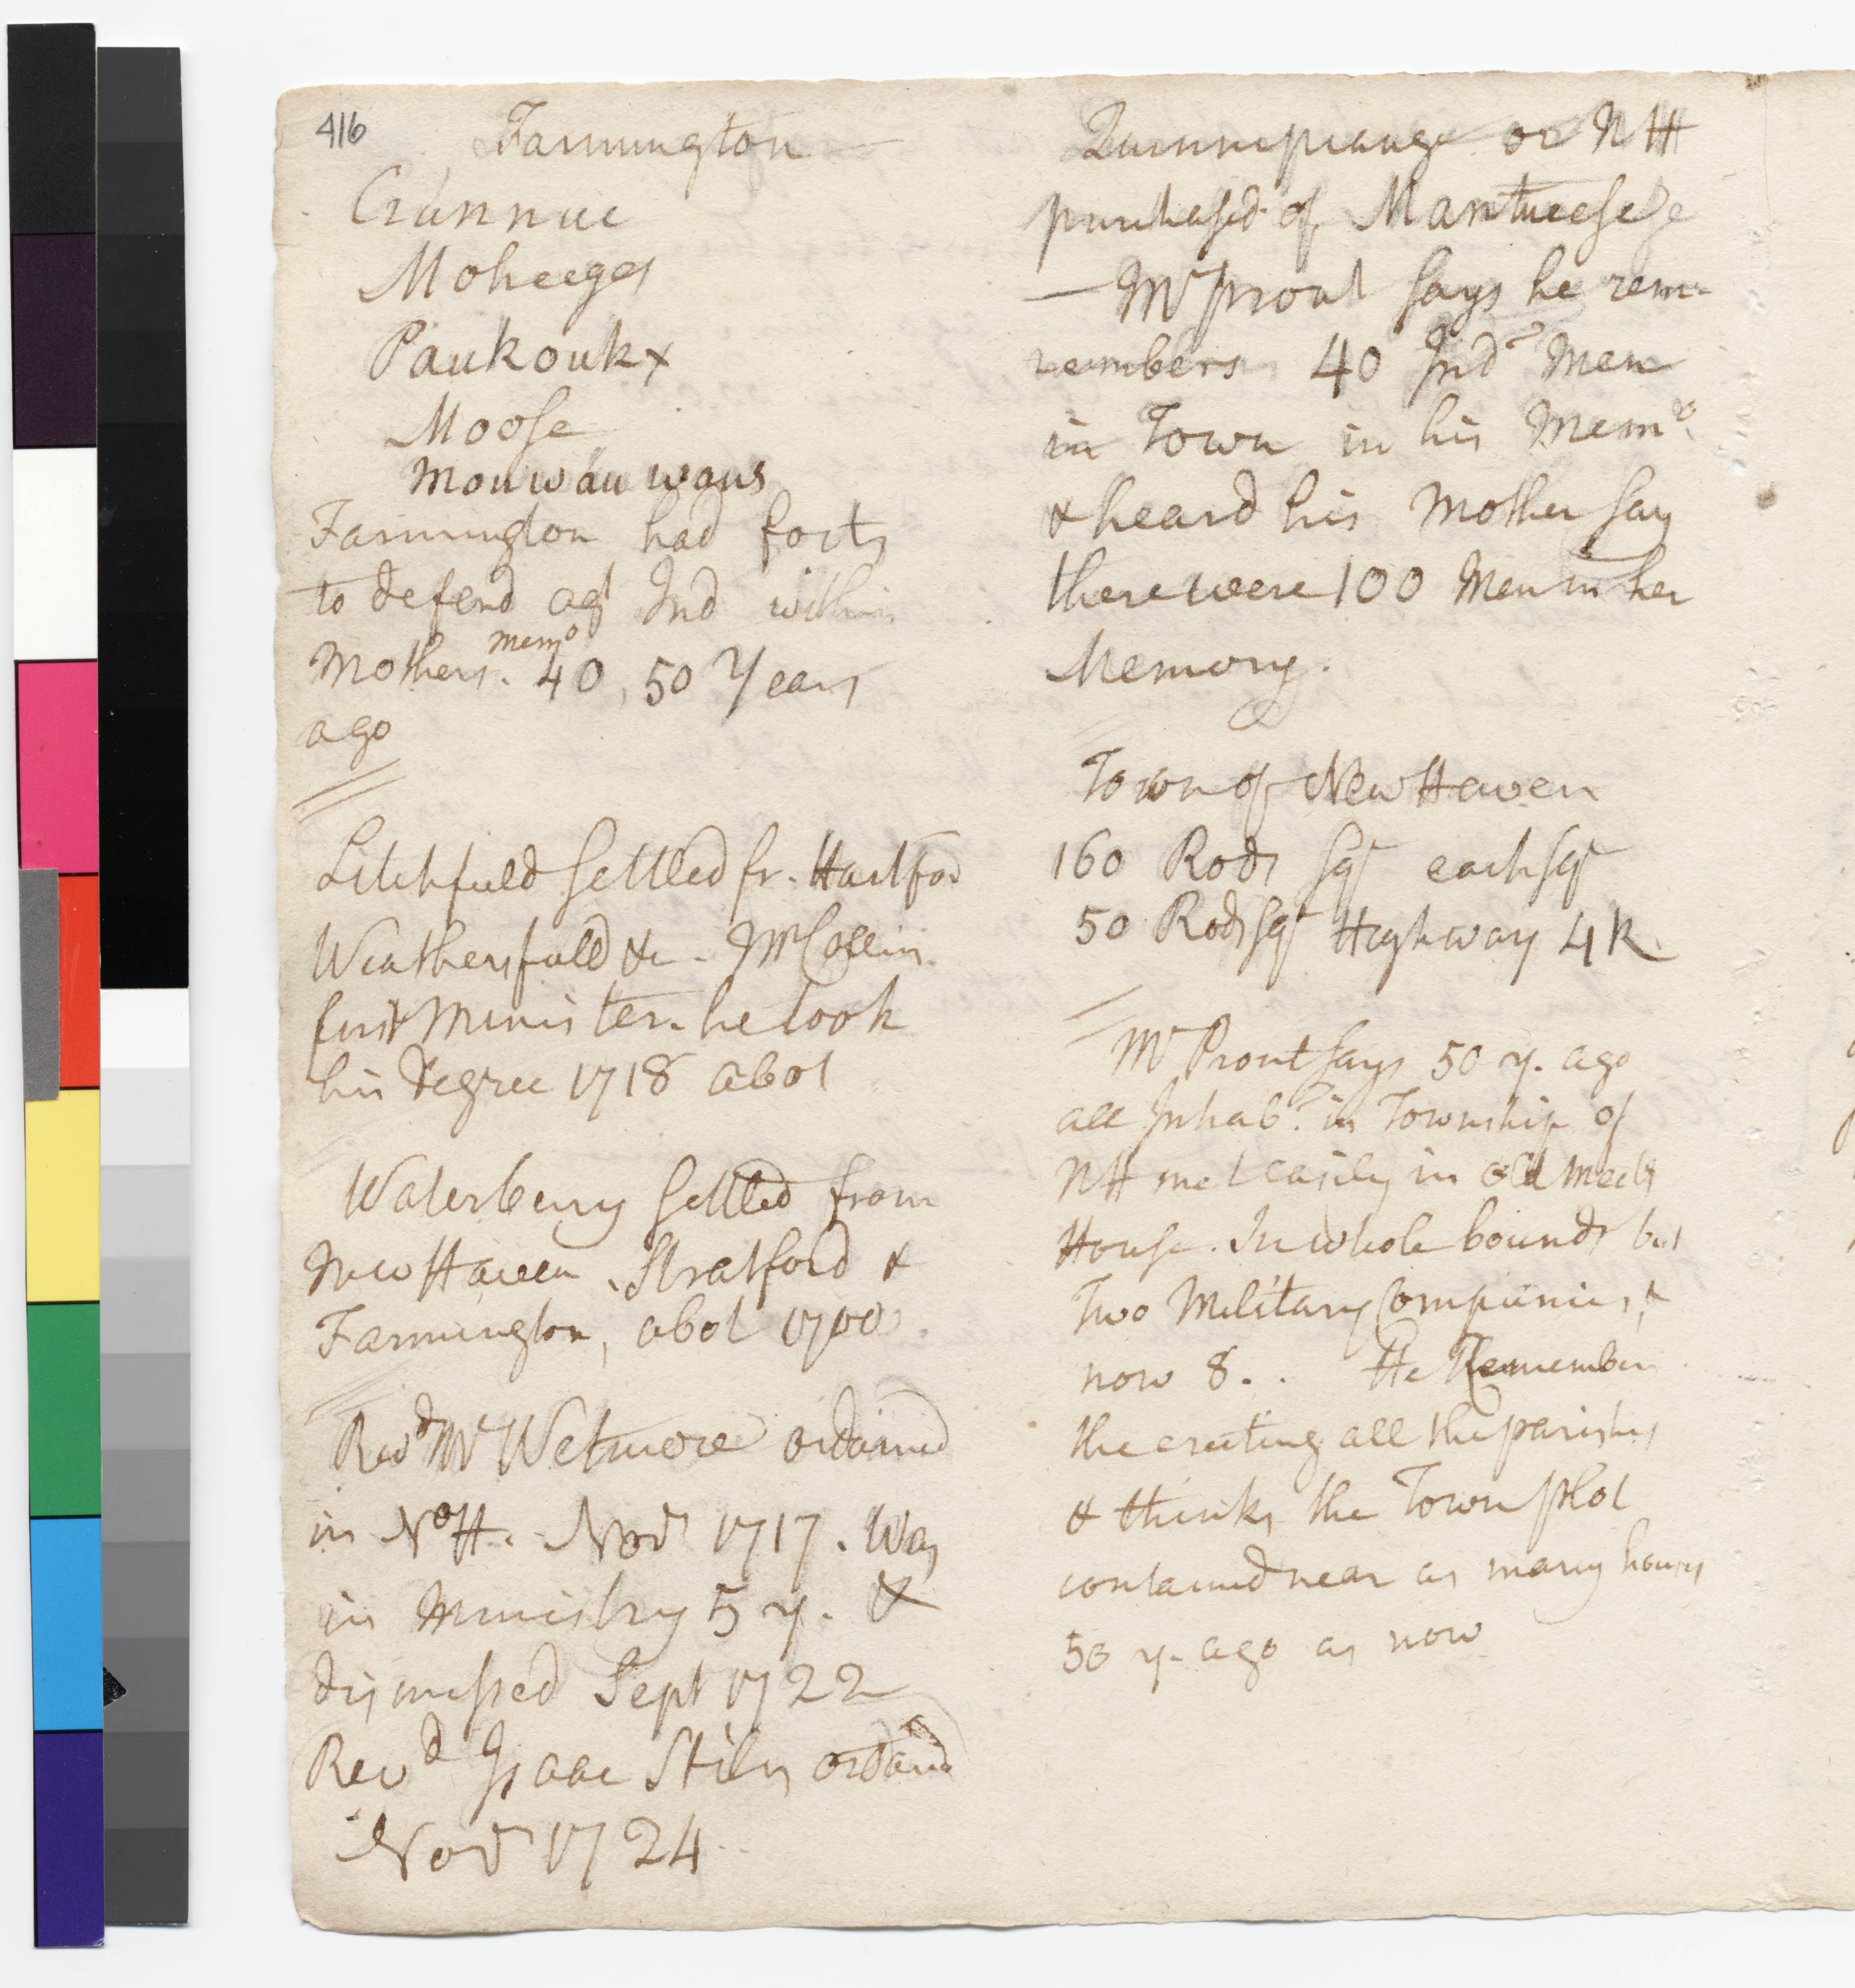 416
Farmington
Crúnnuc
Moheegs
Paukouk
Moose
Mouwâuwous
Farmington had forts
to defend agt Ind within
Memo
Mothers. 40, 50 Years
ago
Litchfield settled fr. Hartford
Weathersfield &c. Mr Collin
first Minister. he took
his Degree 1718 abot
Waterbury settled from
New Haven, Stratford &
Farmington, abot 1700
Revd Mr Wetmore ordained
in No H. Novr 1717. Was
in Ministry 5 y. &
dismissed Sept 1722
Revd Isaac Stiles ordaind
Novr 1724
Quinnipiauge or NH
purchased of Mantueese
— Mr Prout says he rem-
members 40 Inda Men
in Town in his Memo
& heard his Mother say
there were 100 Men in her
Memory.
Town of New Haven
160 Rods sqr each sqr
50 Rods sqr Highway 4 R
Mr Prout says 50 y. ago
all Inhabs in Township of
NH met easily in old Meetg
House. In whole bounds but
Two Military Companies, &
now 8.. He Remembers
the erecting all the parishes
& thinks the Town plot
contained near as many houses
50 y. ago as now